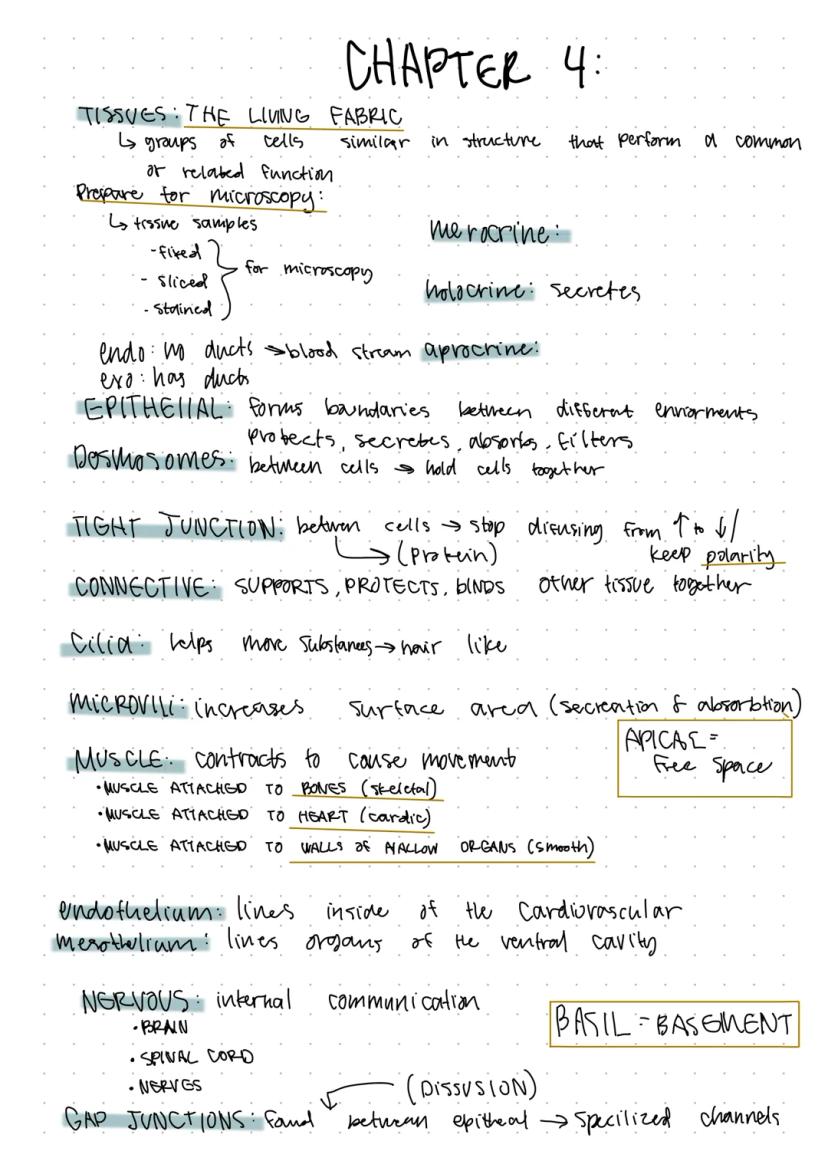 CHAPTER 4:
TISSUES: THE LIVING FABRIC
↳ groups of cells similar in structure that perform a common
or related function
Prepare for microscopy:
↳ tissue samples
- fixed
- sliced
- stained
for microscopy
merocrine:
holocrine: secretes
endo: no ducts → blood stream
aprocrine:
exo: has ducts
EPITHELIAL: forms boundaries between different enviorments
protects, secretes, absorbs, filters
Desmosomes: between cells → hold cells together
TIGHT JUNCTION: between cells → stop difusing from ↑ to ↓/
→ (Protein)
keep polarity
CONNECTIVE: SUPPORTS, PROTECTS, bINDS other tissue together
Cilia: helps move substances → hair like
MICROVILI: increases surface area (secreation & absorbtion)
APICAL =
Free Space
MUSCLE: contracts to cause movement
• MUSCLE ATTACHED TO BONES (skeletal)
• MUSCLE ATTACHED TO HEART (cardic)
• MUSCLE ATTACHED TO WALLS OF HALLOW ORGANS (smooth)
endothelium: lines inside of the cardiovascular
mesothelium: lines organs of the ventral cavity
NERVOUS: internal communication
• BRAIN
• SPINAL CORD
• NERVES
BASIL = BASEMENT
(DISSUSION)
GAP JUNCTIONS: Found between epitheal → specilized channels